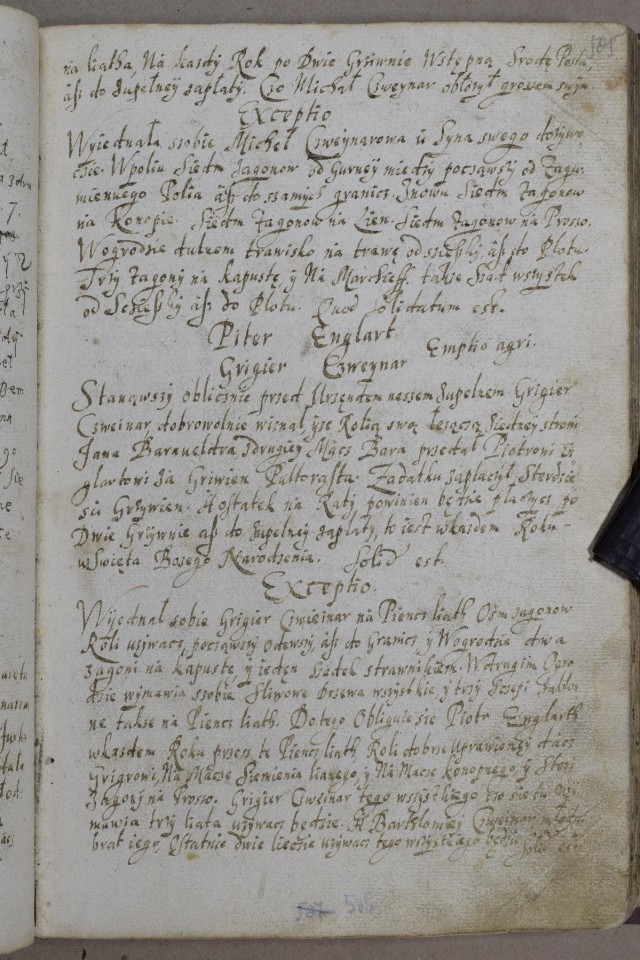 505
na liatha, Na kasdy Rok po Dwie Grziwnie Wstępną Srodę Postu,
aſz do zupełney zapłaty. Czo Michał Czweynar obliczył grosem swym.
Exceptio
Wyiednała ssobie Michel Czweynarowa u Syna swego dożywo
czie. Wpoliu Siedm zagonow od Gurney miedzy począwszy od Zagu
miennego Polia aſz do szamych granicz. Znowu Siedm zagonow
na Konopie. Siedm zagonow na Lien. Siedm zagonow na Prosso.
Wogrodzie trawisko na trawę, od aſz do Plotu.
Trzy zagony na kapustę, y Na Marchieff. takze Szad wszystek
od aſz do Plotu. Quod solidatum est.
Piter Englart
Grigier Czweynar Emptio agri.
Stanąwszy obliesnie przed Urzędem nessem Zupelnem Grigier
Czweinar, dobrowolnie wiznał, ysze Rolią swą leszączą Siedney strony
Jana zdrugiey Macs Bara przedał Piotrowi En
glartowi za Griwien Pultorasta. Zadatku zaplacył Sterdzie
sci Grzywien. A ostatek na Raty powinien będzie placycz po
Dwie Grzywnie aſz do Zupelney zaplaty, to iest wkasdem Roku
wSwięta Bozego Narodzenia. Solid est.
Exceptio.
Wyiednał sobie Grigier Czweinar na Piencz liath Osm zagonow
Roli uzywacz, począwszy aſz do Granicz y Wogrodzie dwa
zagoni na kapustę, y ieden Szadek strawnikiem. Wdrugim Ogro
dzie wymawia ssobie Sliwowe Drzewa wszystkie, y trzy Jablo
ne takze na Piencz liath. Dotego Obliguie sie Piotr Englarth
wkasdem Roku przess te Piencz liath, Roli dobrze uprawioney dacz
Grigrowi, Na Macse Siemienia lianego, y Na Macse konopnego, y
zagony na Prosso. Grigier Czweinar tego wszystkiego czo sie tu wy
mawia trzy liata uzywacz będzie. A Bartholomiey Czweinar młodszy
brat iego, Ostatnie dwie liecie uzywacz tego wszystkiego będzie solid est.